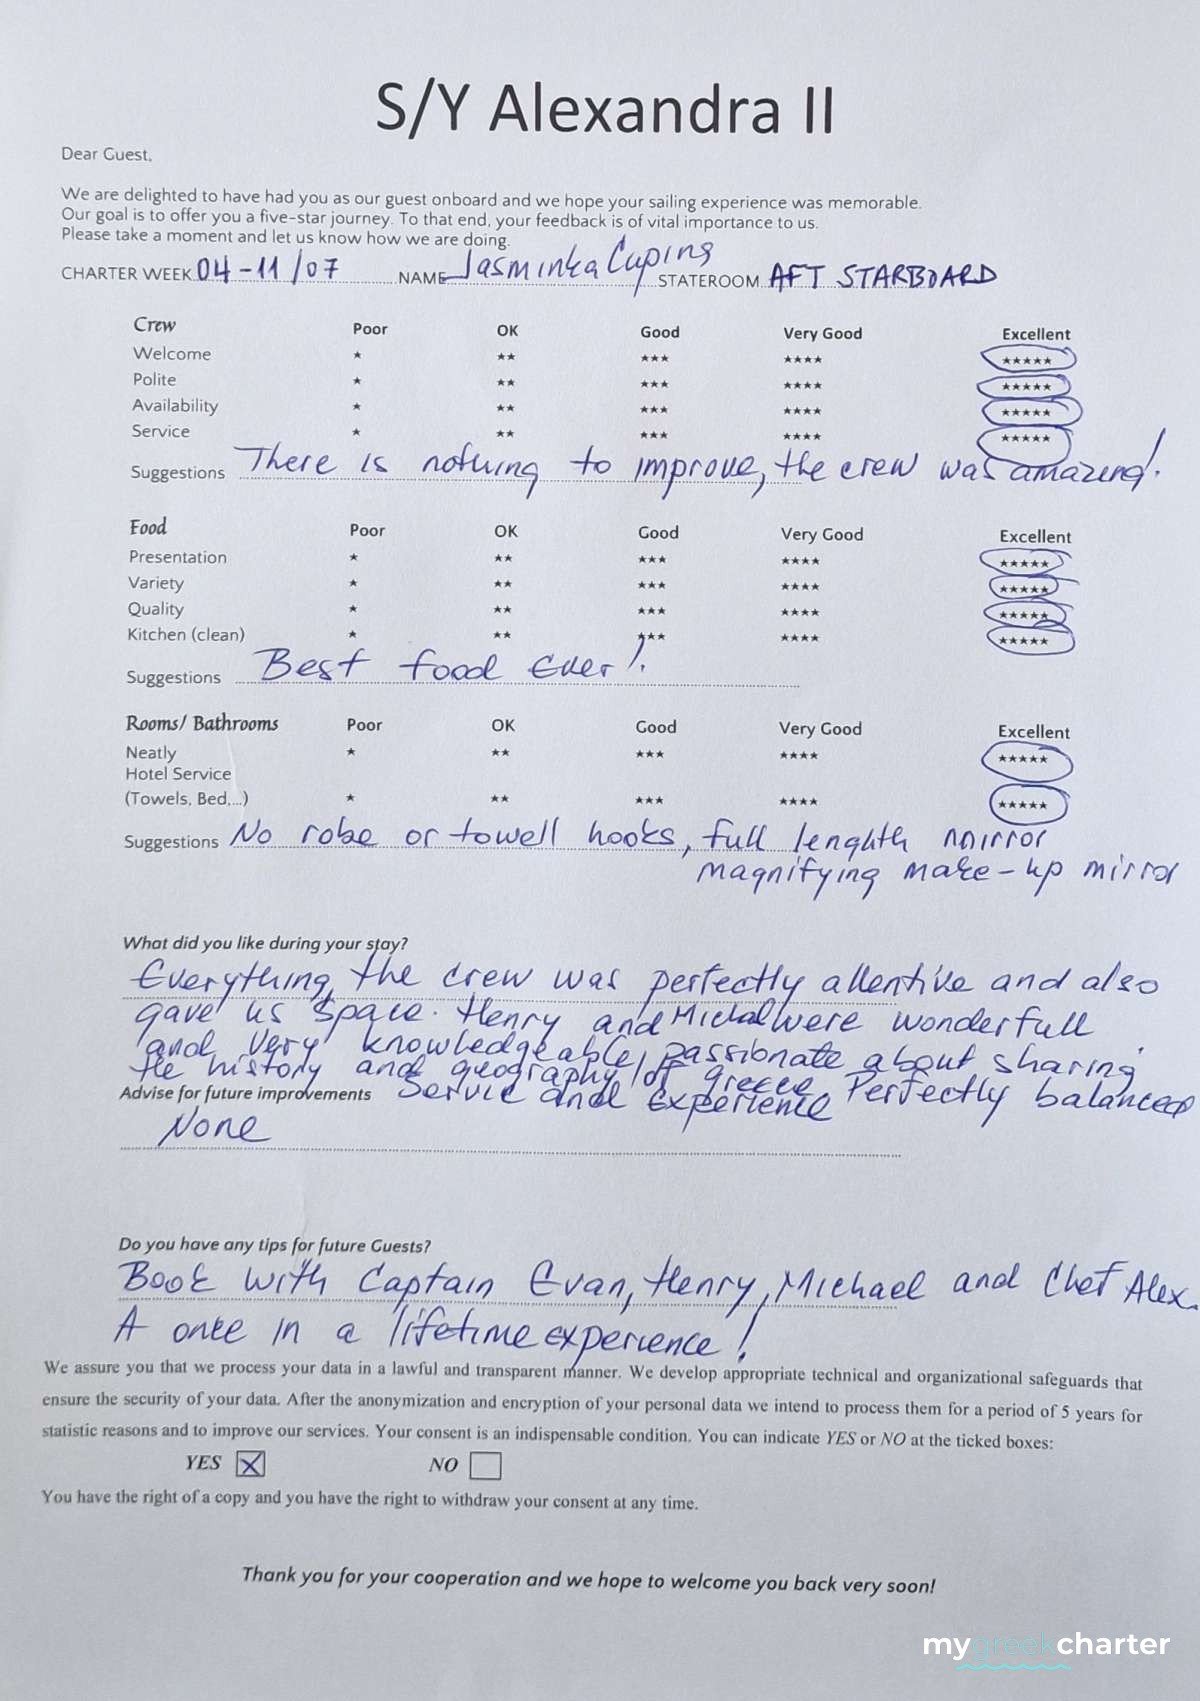 S/Y Alexandra II
Dear Guest,
We are delighted to have had you as our guest onboard and we hope your sailing experience was memorable.
Our goal is to offer you a five-star journey. To that end, your feedback is of vital importance to us.
Please take a moment and let us know how we are doing.
CHARTER WEEK 04-11/07 NAME Jasminka Cuping STATEROOM AFT STARBOARD
Crew Poor OK Good Very Good Excellent
Welcome ★ ★★ ★★★ ★★★★ ★★★★★
Polite ★ ★★ ★★★ ★★★★ ★★★★★
Availability ★ ★★ ★★★ ★★★★ ★★★★★
Service ★ ★★ ★★★ ★★★★ ★★★★★
Suggestions There is nothing to improve, the crew was amazing!
Food Poor OK Good Very Good Excellent
Presentation ★ ★★ ★★★ ★★★★ ★★★★★
Variety ★ ★★ ★★★ ★★★★ ★★★★★
Quality ★ ★★ ★★★ ★★★★ ★★★★★
Kitchen (clean) ★ ★★ ★★★ ★★★★ ★★★★★
Suggestions Best food Ever!
Rooms/ Bathrooms Poor OK Good Very Good Excellent
Neatly ★ ★★ ★★★ ★★★★ ★★★★★
Hotel Service
(Towels, Bed,...) ★ ★★ ★★★ ★★★★ ★★★★★
Suggestions No robe or towell hooks, full lenghth mirror
magnifying make-up mirror
What did you like during your stay?
Everything, the crew was perfectly attentive and also
gave us space. Henry and Michal were wonderfull
and very knowledgeable, passionate about sharing
the history and geography of greece Perfectly balanced
Advise for future improvements Service and Experience
None
Do you have any tips for future Guests?
Book with Captain Evan, Henry, Michael and Chef Alex.
A once in a lifetime experience!
We assure you that we process your data in a lawful and transparent manner. We develop appropriate technical and organizational safeguards that
ensure the security of your data. After the anonymization and encryption of your personal data we intend to process them for a period of 5 years for
statistic reasons and to improve our services. Your consent is an indispensable condition. You can indicate YES or NO at the ticked boxes:
YES X NO
You have the right of a copy and you have the right to withdraw your consent at any time.
Thank you for your cooperation and we hope to welcome you back very soon!
mygreekcharter